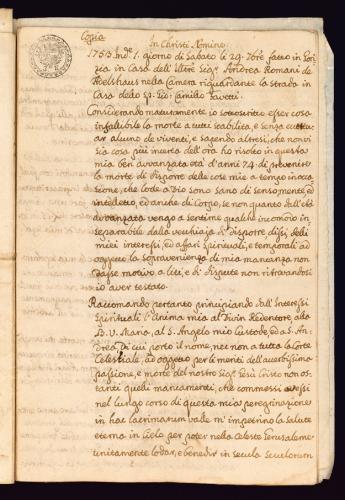 Copia
In Christi Nomine
1753. Ind.e 1. giorno di Sabato li 29. 7bre fatto in Gori
zia in Casa dell' Illre Sigr. Andrea Romani de
Adelshaus nella Camera riguardante la strada in
Casa dello Sp. Sig: Camillo Favetti.
Considerando maturamente io sottoscritto esser cosa
infallibile la morte a tutti stabilita, e senza eccettuar
alcuno de viventi, e sapendo altresì, che non vi
sia cosa più incerta dell' ora ho risolto in questa
mia ben avvanzata età d'anni 74 di prevenire
la morte di disporre delle cose mie a tempo in oca
sione, che lode a Dio sono sano di senso, mente, ed
intelletto, ed anche di Corpo, se non quanto dall' età
avvanzata vengo a sentirne qualche incomodo in
separabile dalla vecchiaja di disporre dissi delli
miei interessi, ed affari spirituali, e temporali ad
oggetto la sopravenienza di mia mancanza non
dasse motivo a liti, e di dispute non ritrovandosi
io aver testato.
Raccomando pertanto principiando dall' Interessi
spirituali l'Anima mia al Divin Redentore, alla
B. V. Maria, al S. Angelo mio Custode, ed a S. An
drea di cui porto il nome, nec non a tutta la Corte
Celestiale, ad oggetto per li meriti dell' acerbissima
passione, e morte del nostro Sigr. Gesù Cristo non os
tanti quelli mancamenti, che commessi avessi
nel lungo corso di questa mia peregrinazione
in hac lacrimarum valle m' impetrino la salute
eterna in Cielo per poter nella Celeste Jerusalemme
unitamente lodar, e benedir in secula seculorum